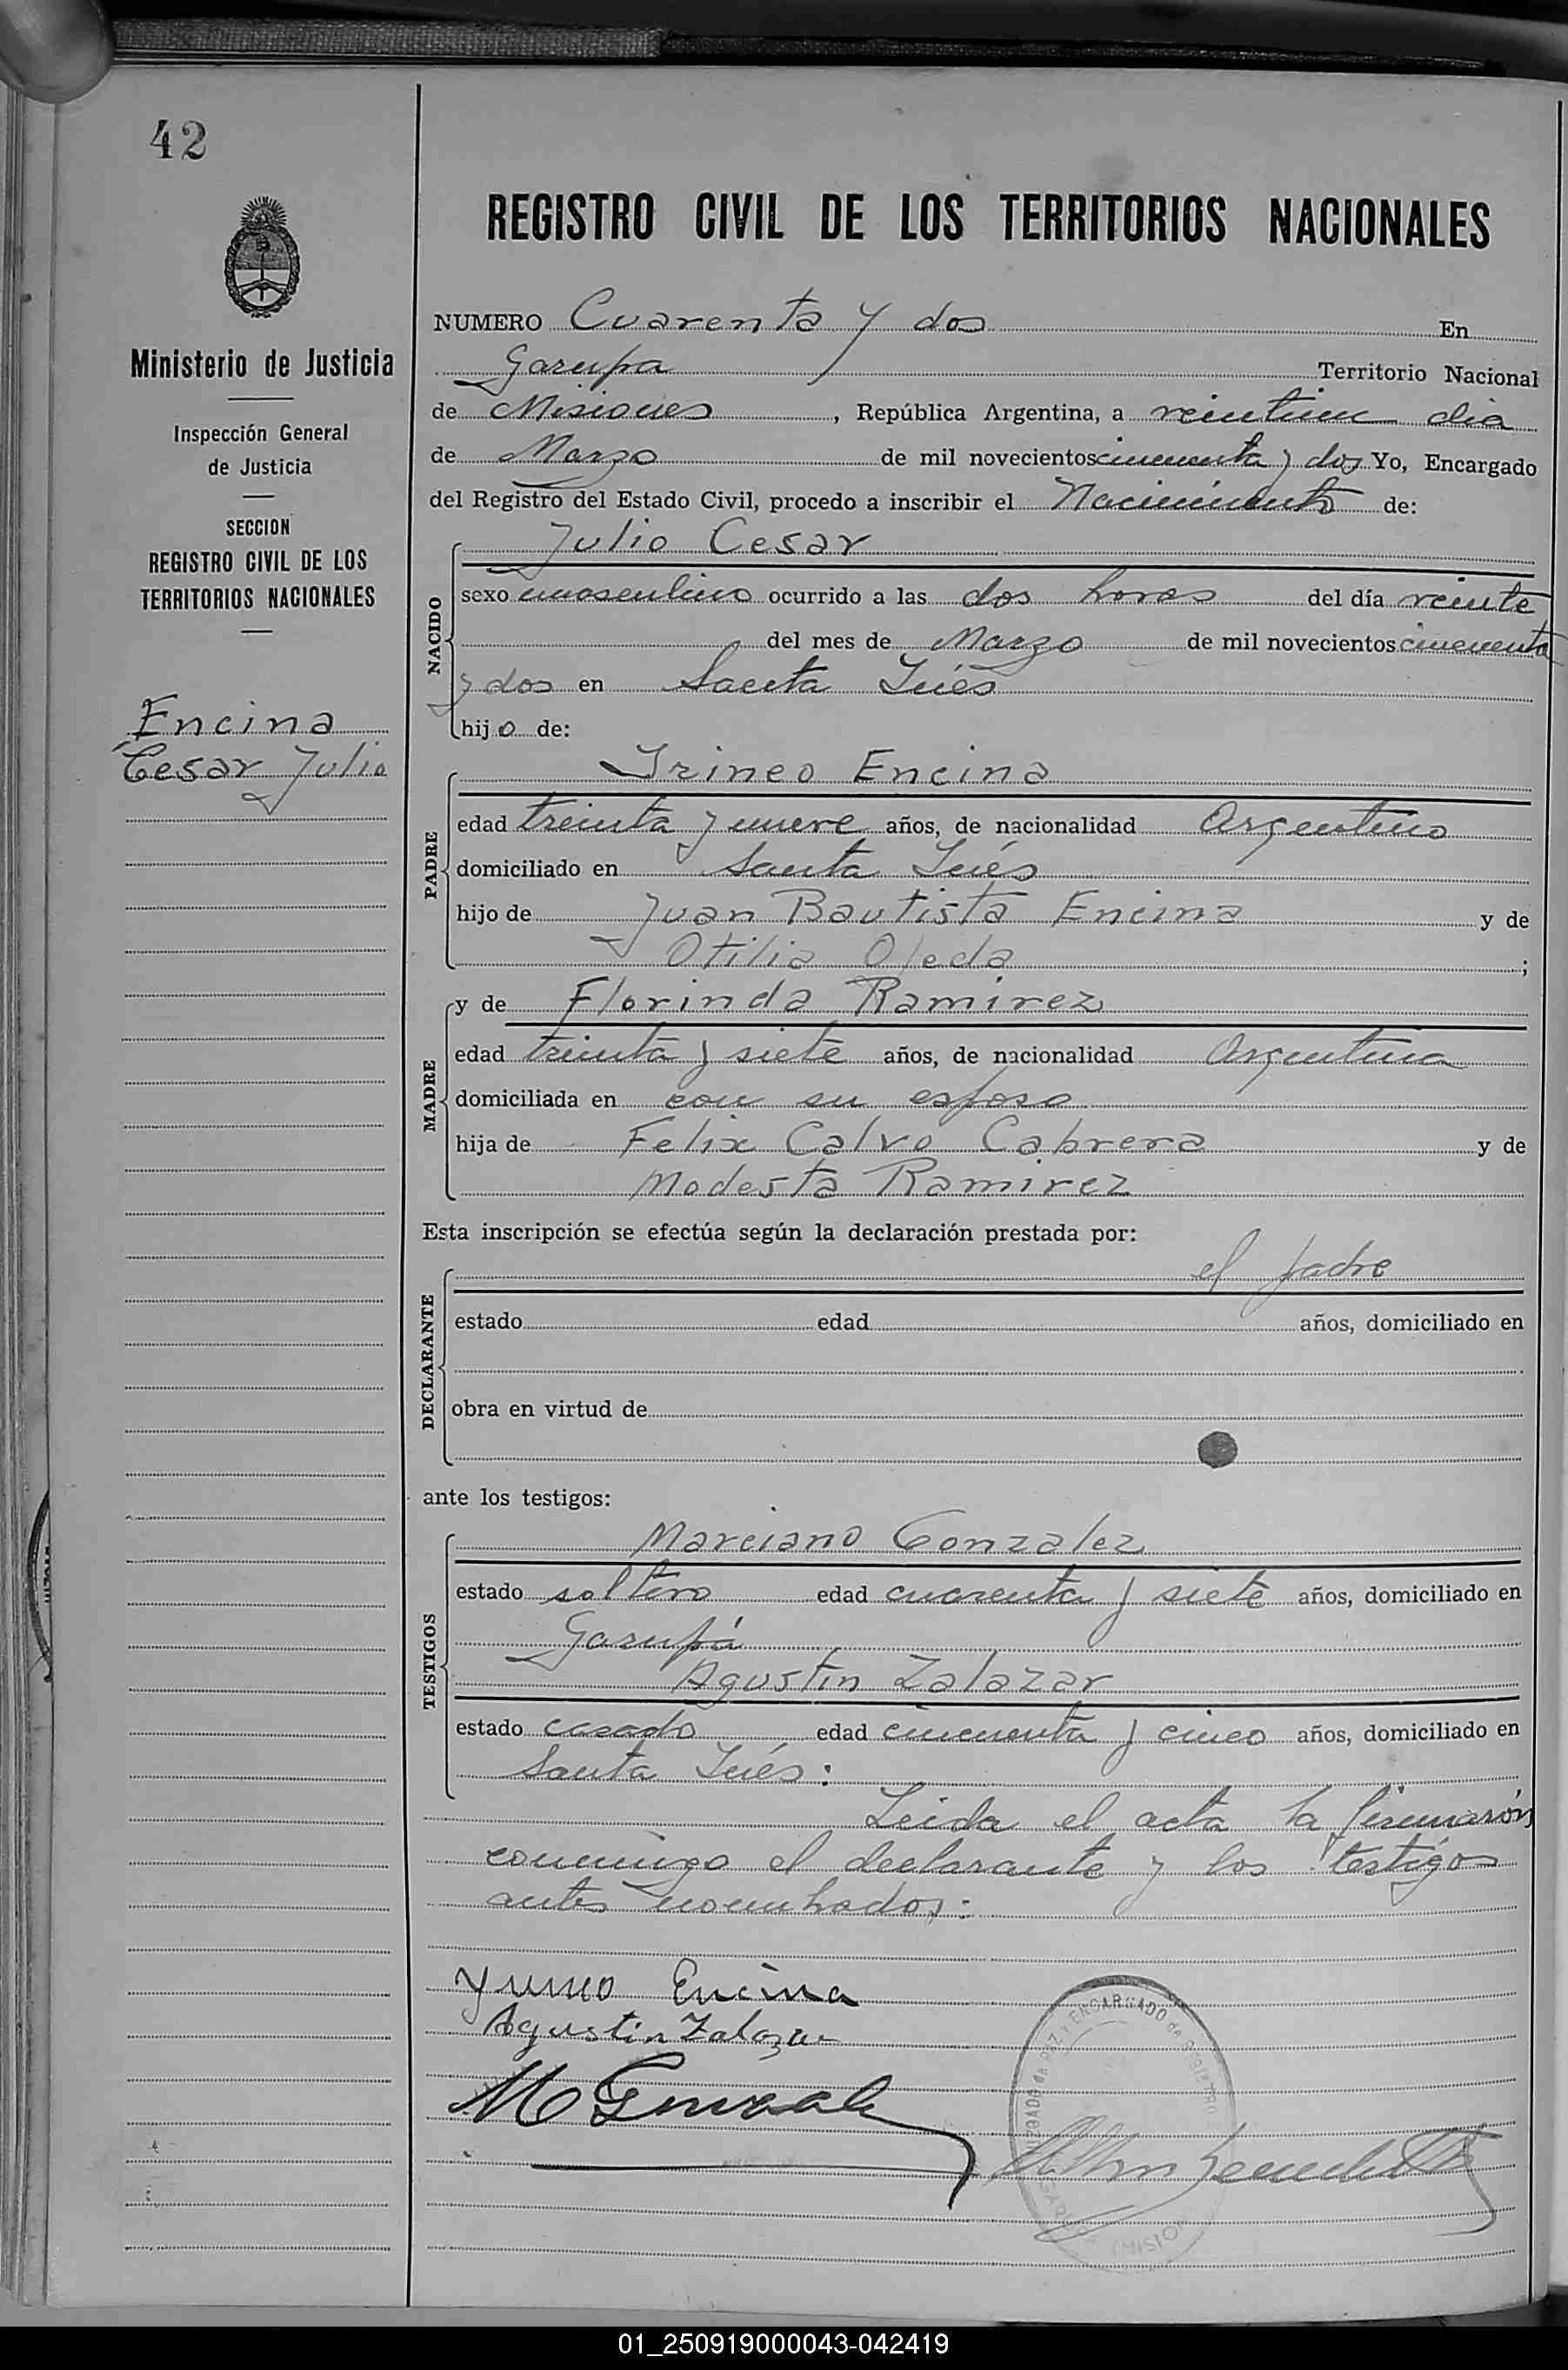 42
REGISTRO CIVIL DE LOS TERRITORIOS NACIONALES
Ministerio de Justicia
Inspección General
de Justicia
SECCION
REGISTRO CIVIL DE LOS
TERRITORIOS NACIONALES
Encina
Cesar Julio
NUMERO Cuarenta y dos En
Garupa Territorio Nacional
de Misiones, República Argentina, a veintiun dia
de Marzo de mil novecientos cincuenta y dos Yo, Encargado
del Registro del Estado Civil, procedo a inscribir el Nacimiento de:
NACIDO
Julio Cesar
sexo masculino ocurrido a las dos horas del día veinte
del mes de Marzo de mil novecientos cincuenta
y dos en Santa Inés
hijo de:
PADRE
Irineo Encina
edad treinta y nueve años, de nacionalidad Argentino
domiciliado en Santa Inés
hijo de Juan Bautista Encina y de
Otilia Ojeda ;
MADRE
y de Florinda Ramirez
edad treinta y siete años, de nacionalidad Argentina
domiciliada en con su esposo
hija de Felix Calvo Cabrera y de
Modesta Ramirez
Esta inscripción se efectúa según la declaración prestada por:
DECLARANTE
el padre
estado edad años, domiciliado en
obra en virtud de
ante los testigos:
TESTIGOS
Marciano Gonzalez
estado soltero edad cuarenta y siete años, domiciliado en
Garupá
Agustin Zalazar
estado casado edad cincuenta y cinco años, domiciliado en
Santa Inés:
Leida el acta la firmarón
conmigo el declarante y los testigos
antes nombrados:
Yrineo Encina
Agustin Zalazar
M Gonzalez
ENCARGADO de
01_250919000043-042419